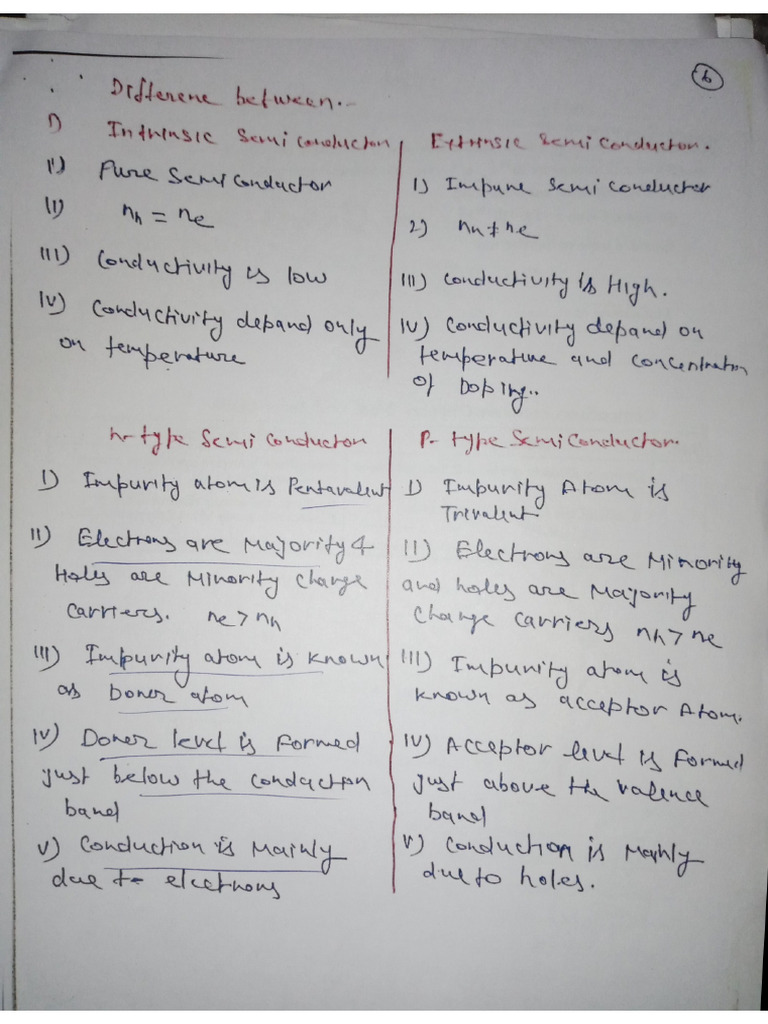 6
Differene between.-
1) Intrinsic Semi conductor
Extrinsic Semi Conductor.
i) Pure Semi Conductor
1) Impure Semi Conductor
ii) nh = ne
2) nh ≠ ne
iii) Conductivity is low
iii) Conductivity is High.
iv) Conductivity depand only
on temperature
iv) Conductivity depand on
temperature and concentration
of Doping..
n-type Semi Conductor
P- type Semi Conductor.
1) Impurity atom is Pentavalent
1) Impurity Atom is
Trivalent
II) Electrons are Majority &
Holes are Minority Charge
Carriers. ne > nh
II) Electrons are Minority
and holes are Majority
Charge Carriers nh > ne
III) Impurity atom is known
as Doner atom
III) Impurity atom is
known as acceptor Atom.
IV) Doner level is formed
just below the conduction
band
IV) Acceptor level is formed
just above the valence
band
V) Conduction is Mainly
due to elcetrons
V) Conduction is Mainly
due to holes.